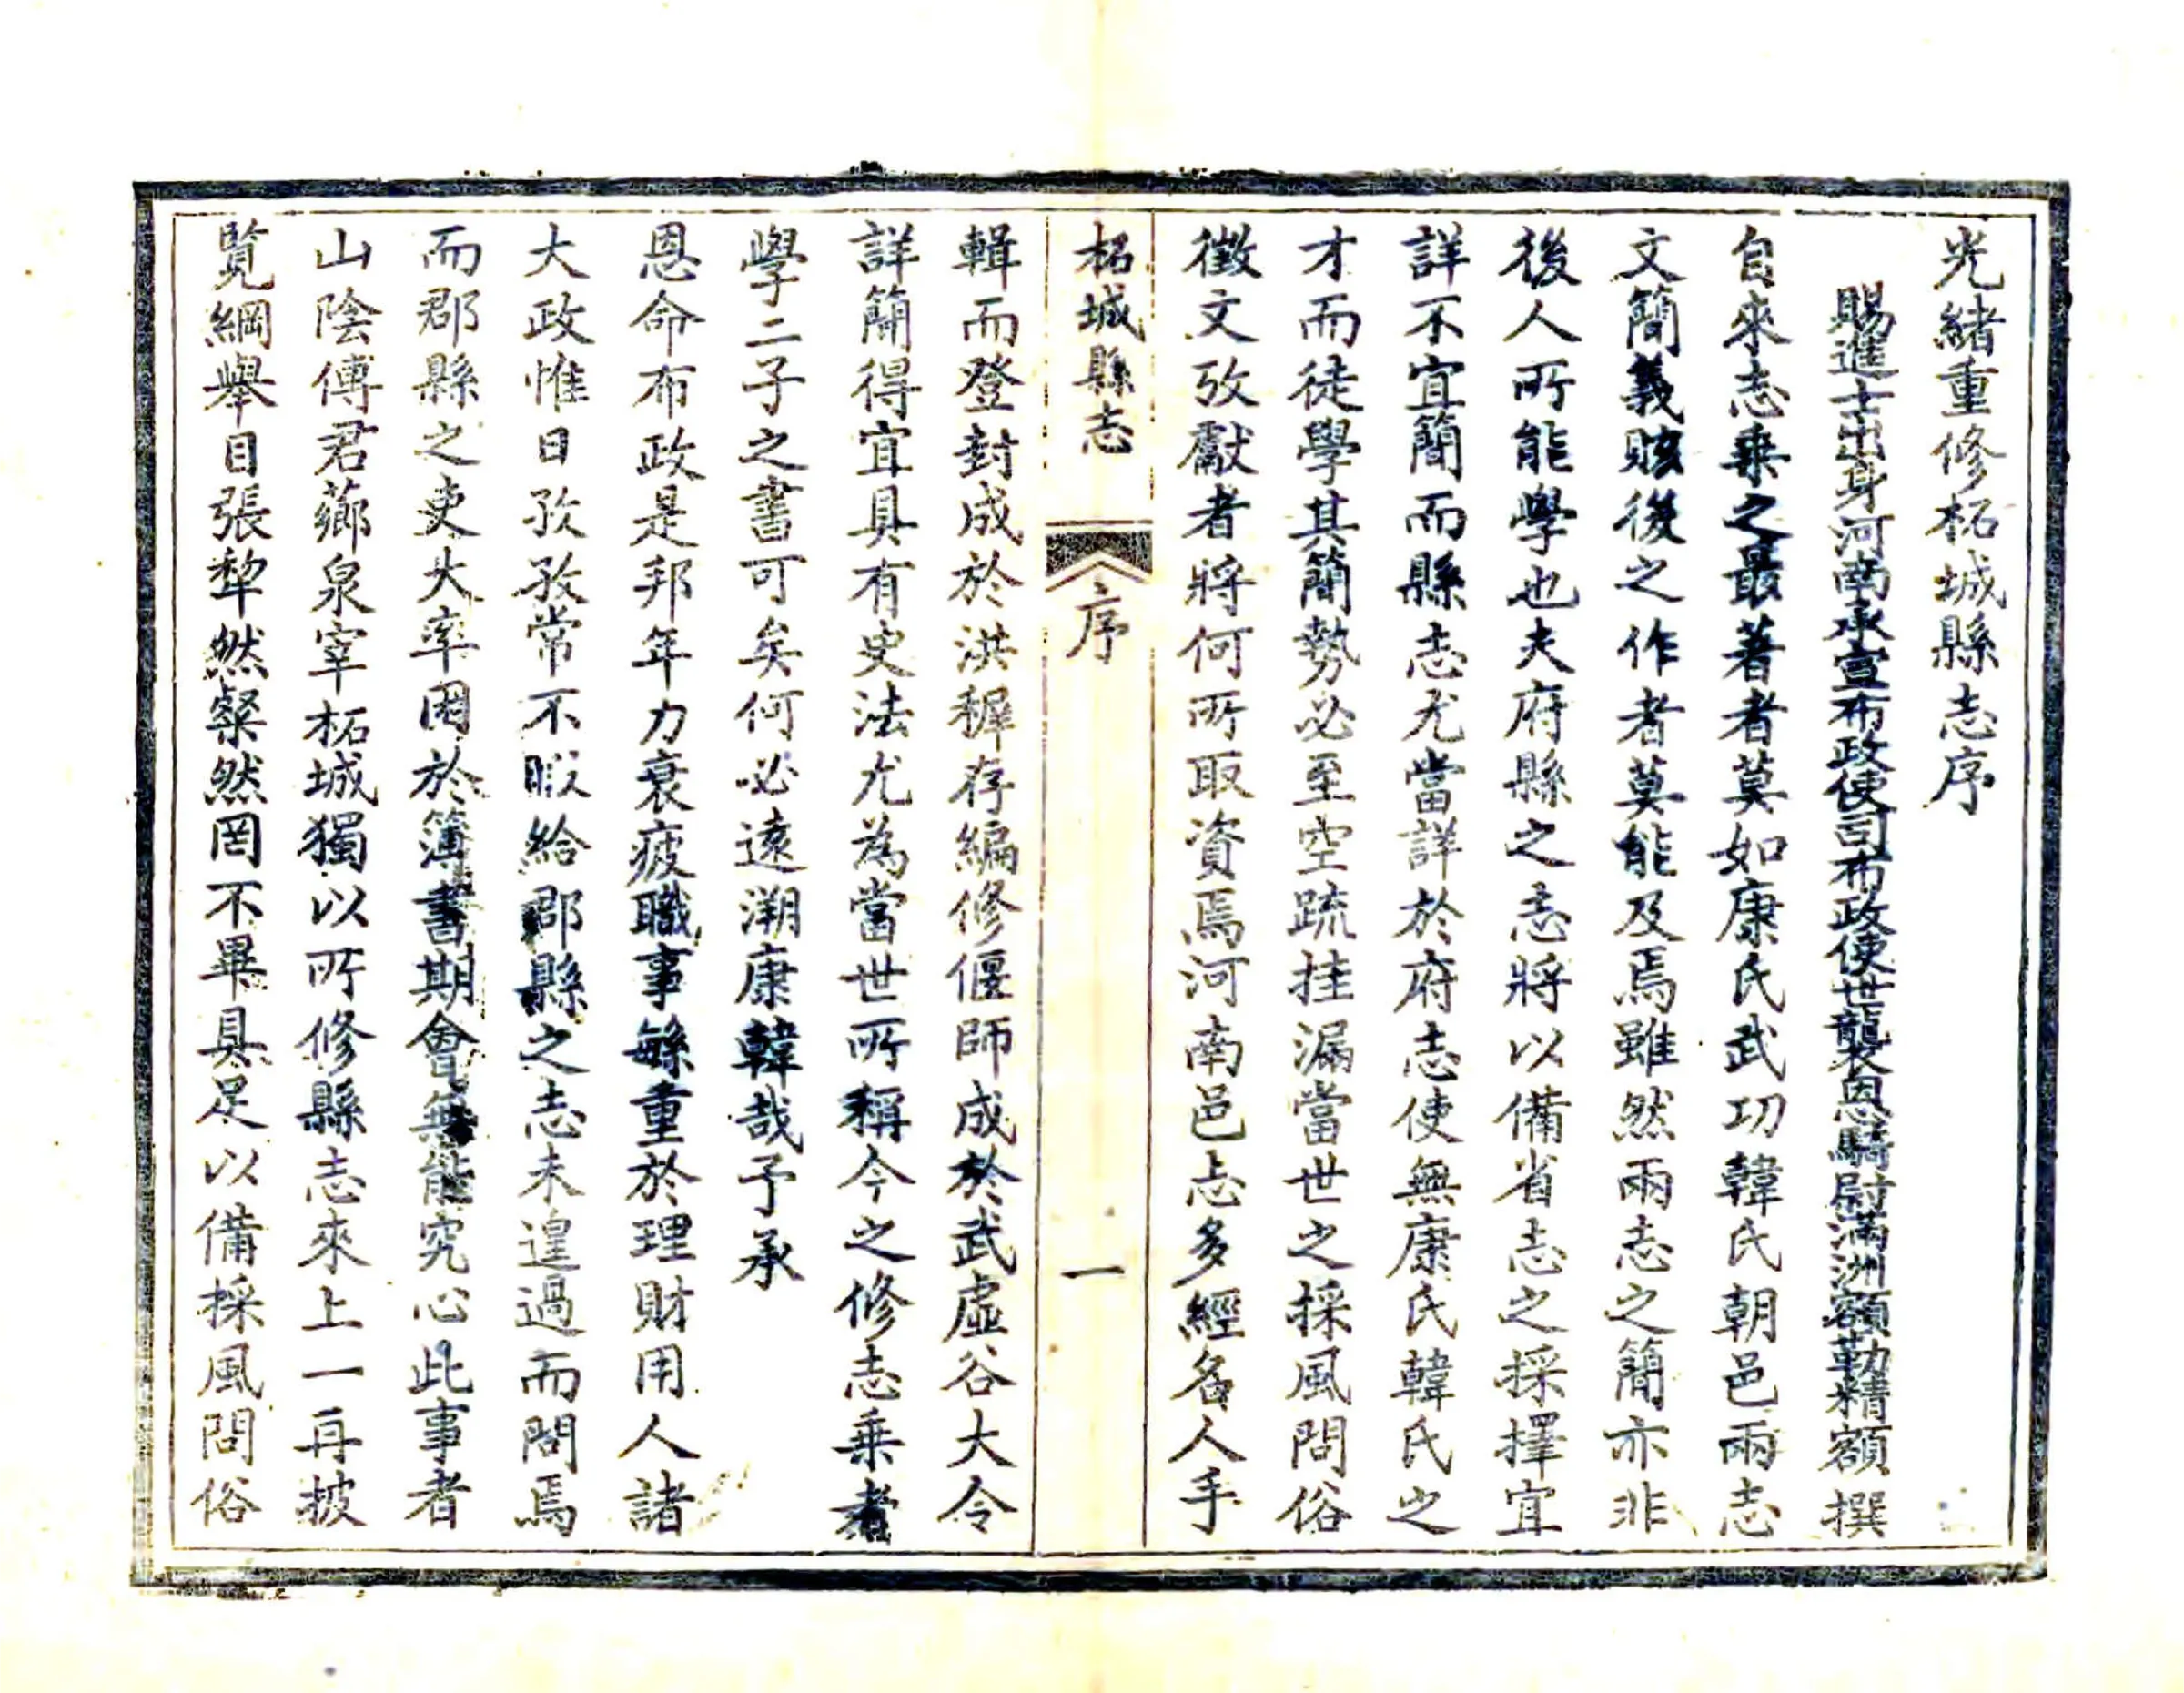 光緒重修柘城縣志序
賜進士出身河南承宣布政使司布政使世襲恩騎尉滿洲額勒精額撰
自來志乘之最著者莫如康氏武功韓氏朝邑兩志
文簡義賅後之作者莫能及焉雖然兩志之簡亦非
後人所能學也夫府縣之志將以備省志之採擇宜
詳不宜簡而縣志尤當詳於府志使無康氏韓氏之
才而徒學其簡勢必至空疏挂漏當世之採風問俗
徵文攷獻者將何所取資焉河南邑志多經名人手
柘城縣志 序 一
輯而登封成於洪穉存編修偃師成於武虛谷大令
詳簡得宜具有史法尤為當世所稱今之修志乘者
學二子之書可矣何必遠溯康韓哉予承
恩命布政是邦年力衰疲職事繇重於理財用人諸
大政惟日孜孜常不暇給郡縣之志未遑過而問焉
而郡縣之吏大率困於簿書期會無能究心此事者
山陰傅君薌泉宰柘城獨以所修縣志來上一再披
覽綱舉目張犂然粲然罔不畢具足以備採風問俗